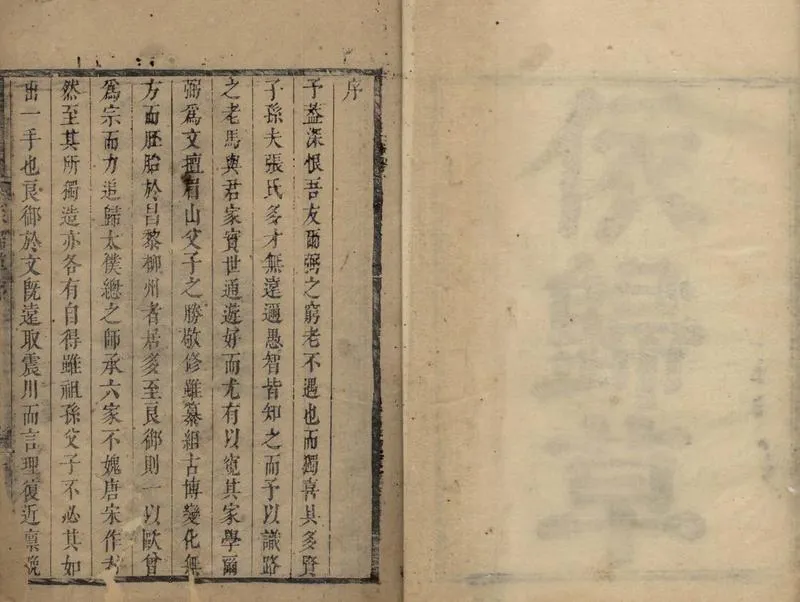 序
予葢深恨吾友爾弼之窮老不遇也而獨喜其多賢
子孫夫張氏多才無遠邇愚智皆知之而予以識路
之老馬與君家實世通遊好而尤有以窺其家學爾
弼爲文擅眉山父子之勝敬修雖纂組古博變化無
方而胚胎於昌黎柳州者居多至良御則一以歐曾
爲宗而力追歸太僕總之師承六家不媿唐宋作者
然至其所獨造亦各有自得雖祖孫父子不必其如
出一手也良御於文旣遠取震川而言理復近禀